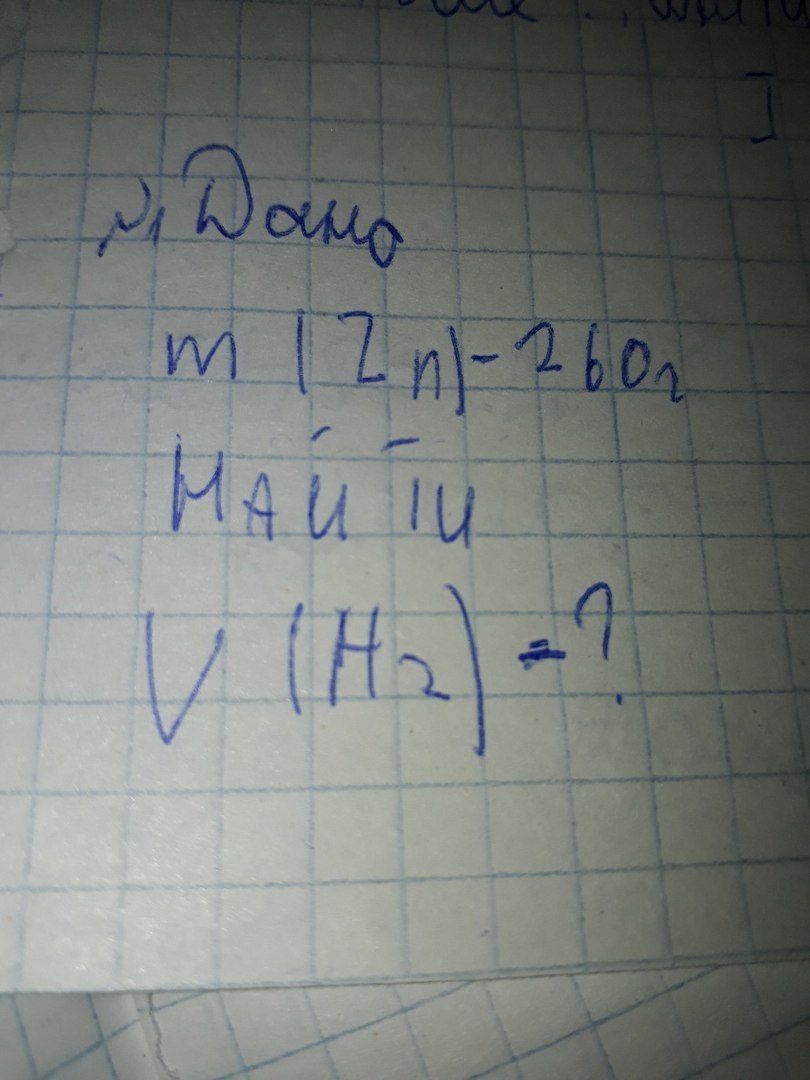 №1 Дано
m (Zn) - 260г
НАЙТИ
V (H2) = ?